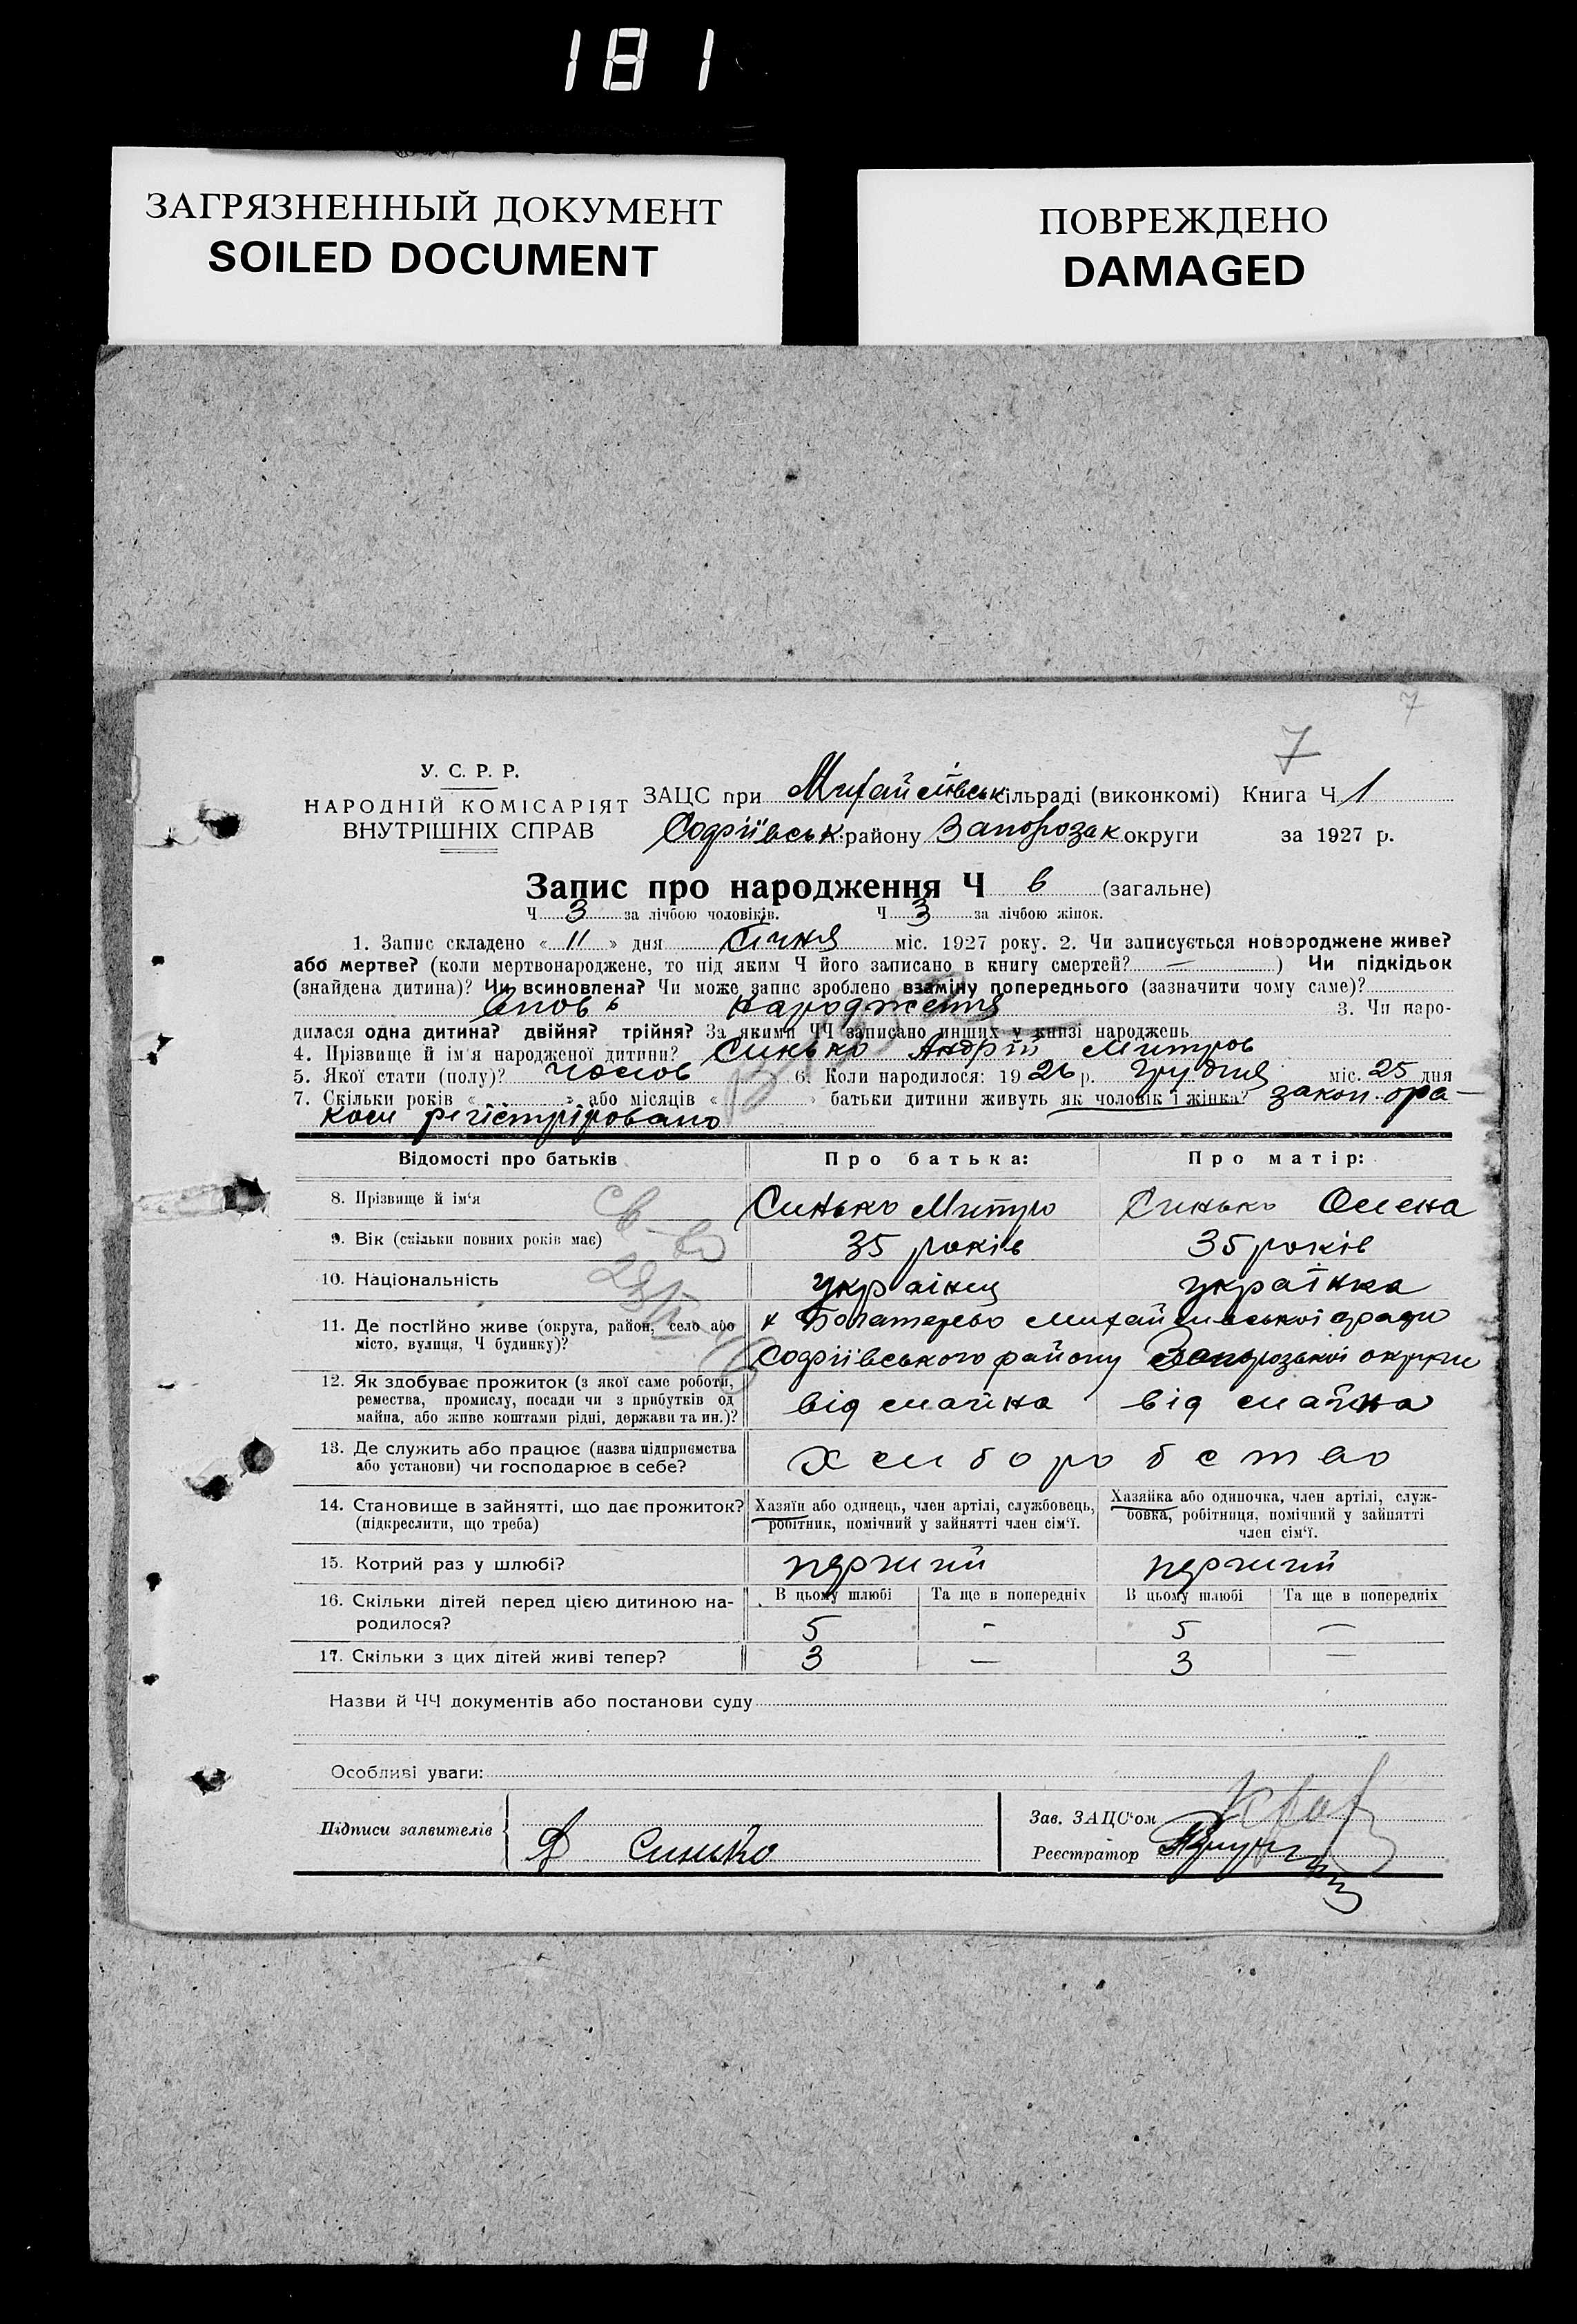 181
ЗАГРЯЗНЕННЫЙ ДОКУМЕНТ
SOILED DOCUMENT
ПОВРЕЖДЕНО
DAMAGED
7
7
У. С. Р. Р.
НАРОДНІЙ КОМІСАРІЯТ
ВНУТРІШНІХ СПРАВ
ЗАЦС при Михайлівськ сільраді (виконкомі) Книга Ч 1
Софіївськ. району Запорозьк округи за 1927 р.
Запис про народження Ч 6 (загальне)
Ч 3 за лічбою чоловіків. Ч 3 за лічбою жінок.
1. Запис складено « 11 » дня Січня міс. 1927 року. 2. Чи записується новороджене живе?
або мертве? (коли мертвонароджене, то під яким Ч його записано в книгу смертей? — ) Чи підкідьок
(знайдена дитина)? Чи всиновлена? Чи може запис зроблено взаміну попереднього (зазначити чому саме)?
народження 3. Чи наро-
дилася одна дитина? двійня? трійня? За якими ЧЧ записано инших у книзі народжень
4. Прізвище й ім'я народженої дитини? Синько Андрій Митров
5. Якої стати (полу)? чолов 6. Коли народилося: 1926 р. Грудня міс. 25 дня
7. Скільки років « » або місяців « » батьки дитини живуть як чоловік і жінка? закон.
регістріровано
Відомості про батьків
Про батька:
Про матір:
8. Прізвище й ім'я Синько Митро Синько Олена
9. Вік (скільки повних років має) 35 років 35 років
10. Національність українц українка
11. Де постійно живе (округа, район, село або
місто, вулиця, Ч будинку)?
х Богатирьво Михайлівської сради
Софіївського району Запорозької округи
12. Як здобуває прожиток (з якої саме роботи,
ремества, промислу, посади чи з прибутків од
майна, або живе коштами рідні, держави та ин.)?
від майна від майна
13. Де служить або працює (назва підприємства
або установи) чи господарює в себе?
хлиборобство
14. Становище в зайнятті, що дає прожиток?
(підкреслити, що треба)
Хазяїн або одинець, член артілі, службовець,
робітник, помічний у зайнятті член сім'ї.
Хазяйка або одиночка, член артілі, служ-
бовка, робітниця, помічний у зайнятті
член сім'ї.
15. Котрий раз у шлюбі? перший перший
16. Скільки дітей перед цією дитиною на-
родилося?
В цьому шлюбі Та ще в попередніх В цьому шлюбі Та ще в попередніх
5 - 5 —
17. Скільки з цих дітей живі тепер? 3 — 3 —
Назви й ЧЧ документів або постанови суду
Особливі уваги:
Підписи заявителів
Синько
Зав. ЗАЦС'ом
Реєстратор